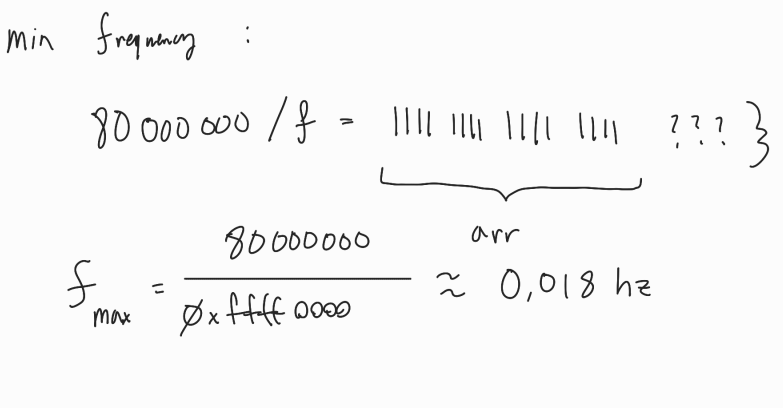 min frequency :
80 000 000 / f = 1111 1111 1111 1111 ??? }
arr
f max = 80000000 / 0xffff 0000 ≈ 0,018 hz